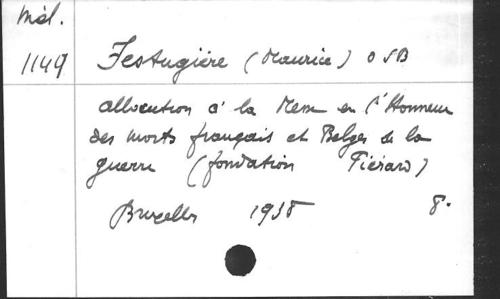 Mél.
1149 Festugière (Maurice) OSB
allocution à la Messe en l'Honneur
des morts français et Belges de la
guerre (fondation Piérard)
Bruxelles 1938 8°